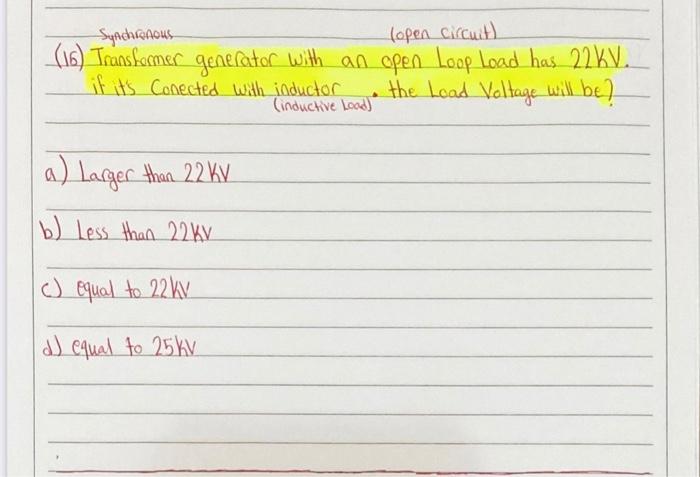 Synchronous (open circuit)
(16) Transformer generator with an open Loop Load has 22KV.
if it's Conected with inductor . the Load Voltage will be?
(inductive Load)
a) Larger than 22KV
b) Less than 22KV
c) equal to 22KV
d) equal to 25KV